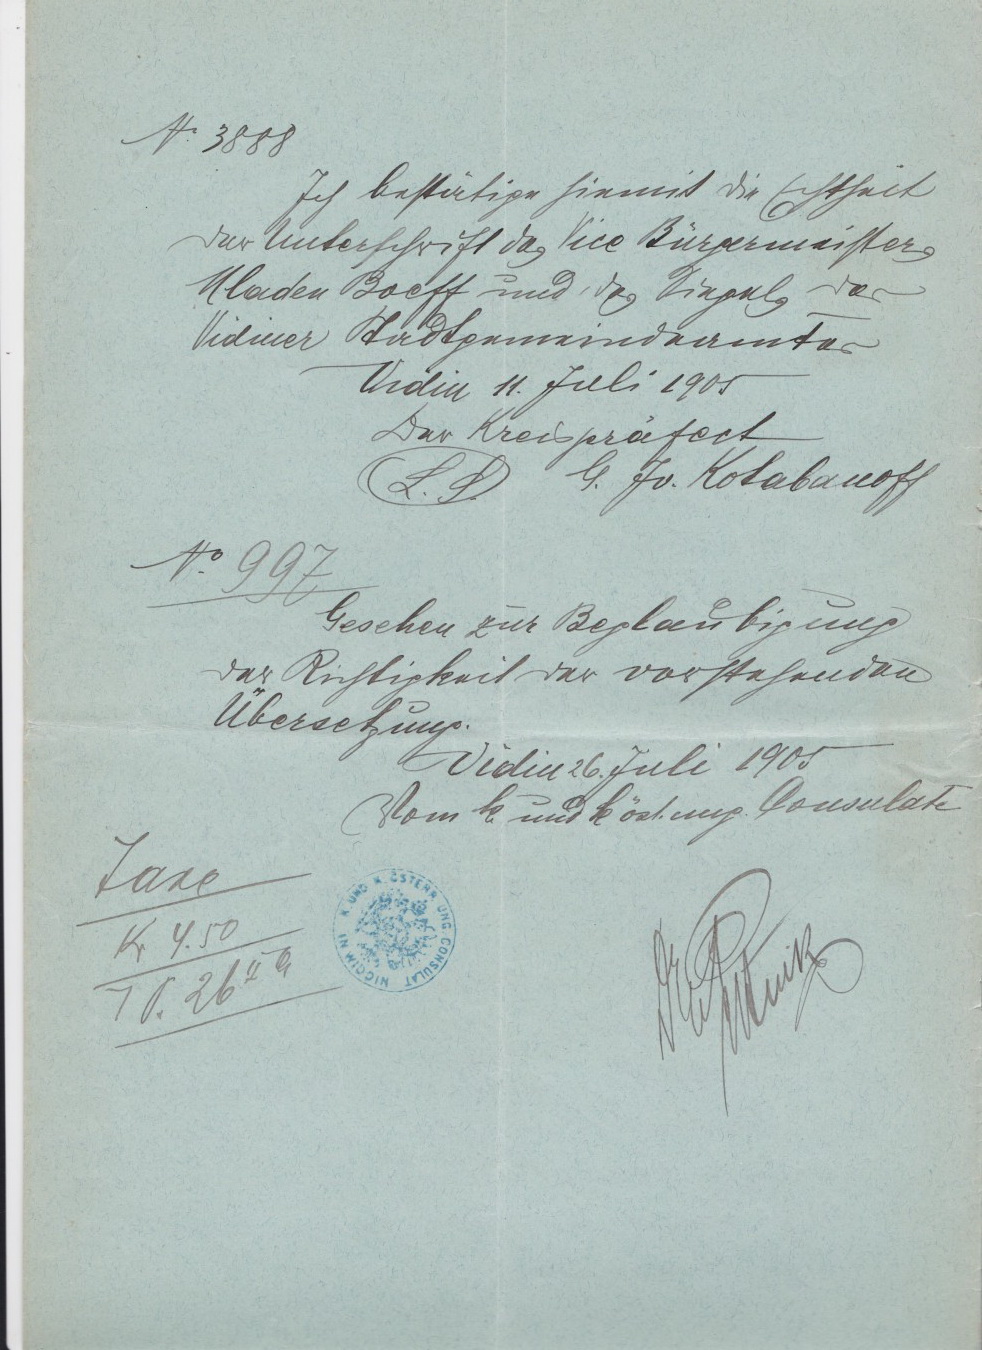 N° 3888
Ich bestätige hiemit die Echtheit
der Unterschrift des Vice Bürgermeisters
Mladen Boeff und des Siegels des
Vidiner Stadtgemeindeamtes
Vidin 11. Juli 1905
Der Kreispräfect
L. S. G. Iv. Kolabanoff
N° 997
Gesehen zur Beglaubigung
der Richtigkeit der vorstehenden
Übersetzung.
Vidin 26. Juli 1905
Vom k und k öst. ung. Consulate
Taxe
K 4.50
T P. 26
K. UND K. ÖSTERR. UNG. CONSULAT IN WIDDIN
Dr